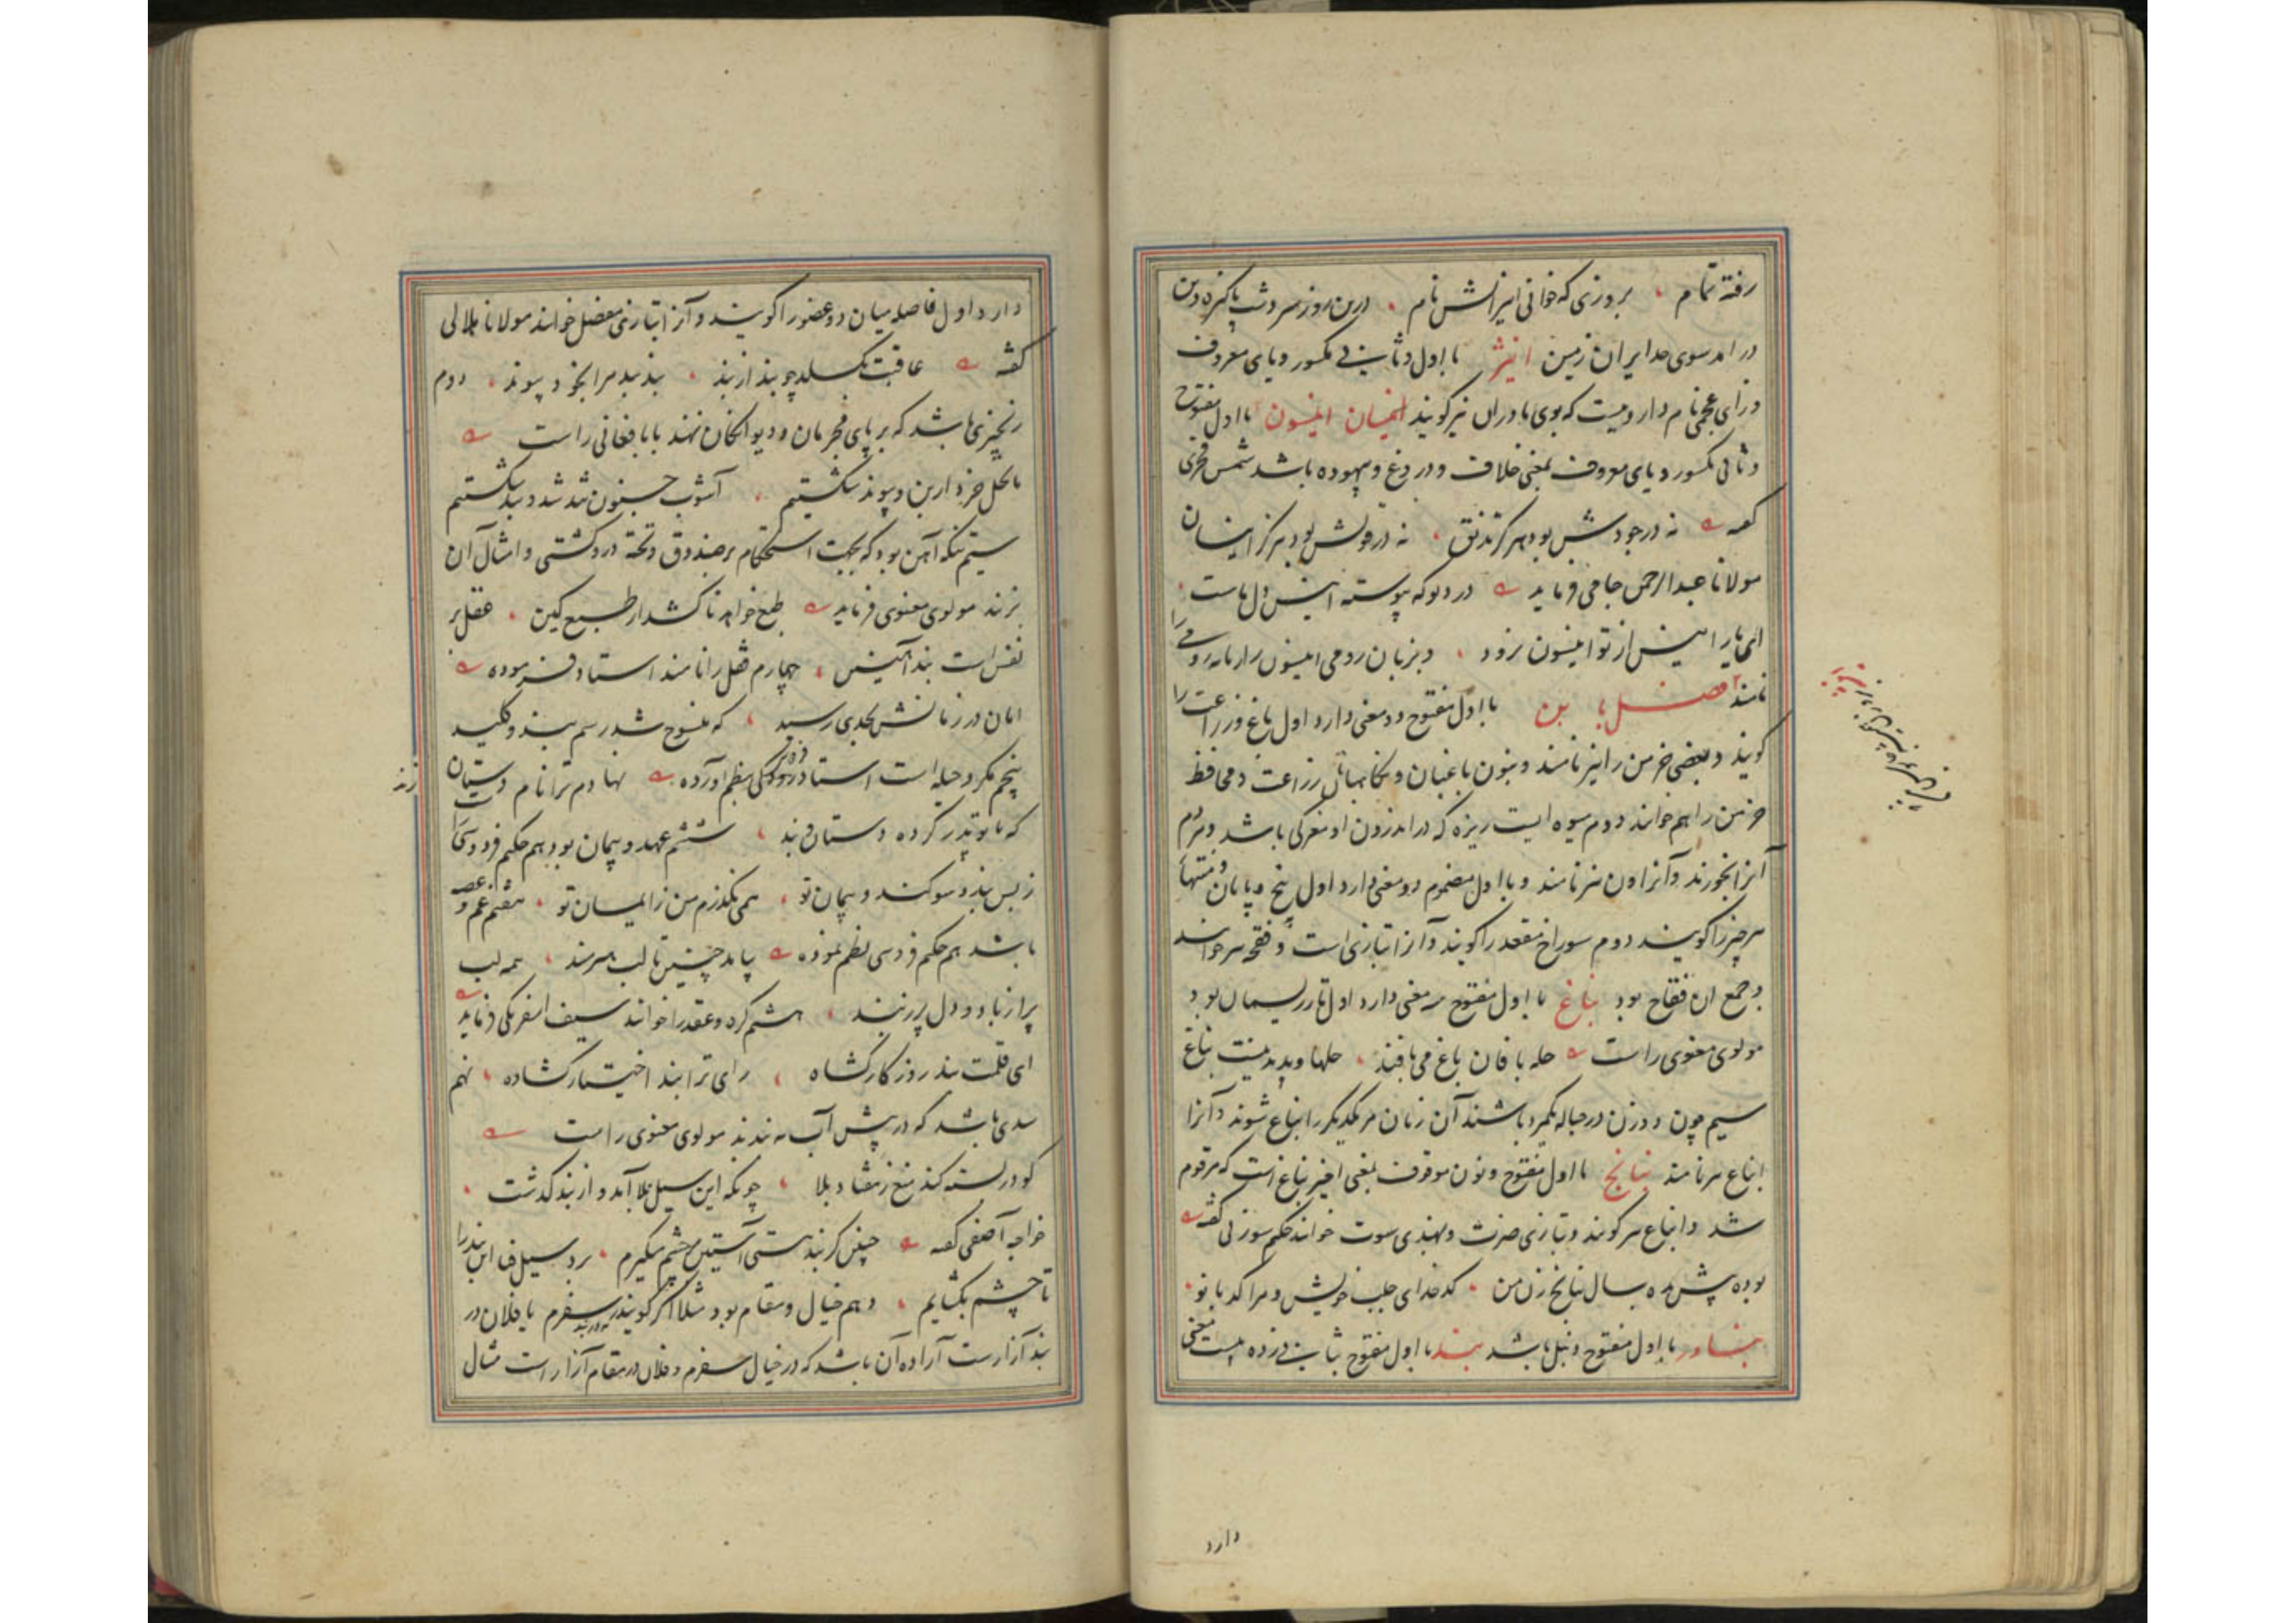 رفته تمام بروزی که خوانی انیرانش نام درین روز سردشت پاکیزه دین
درامد سوی حد ایران زمین انیژ با اول و ثانی مکسور و یای معروف
و زای عجمی نام دارویست که بوی مادران نیز گویند انیسان انیسون با اول مفتوح
و ثانی مکسور و یای معروف بمعنی خلاف و دروغ و بیهوده باشد شمس فخری
گفته نه در وجودش بود هرگز نه در قولش بود هرگز انیسان
مولانا عبدالرحمن جامی فرماید در دلو که پیوسته انیس دل ماست
ای یار انیس از تو انیسون نرود و بزبان رومی انیسون رازیانه رومی را
نامند فصل با بن با اول مفتوح دو معنی دارد اول باغ و زراعت را
گویند و بعضی خرمن را نیز نامند و بنوان باغبان و نگاهبان زراعت و محافظ
خرمن را هم خوانند دوم میوه ایست ریزه که در اندرون او مغزکی باشد و مردم
آنرا بخورند و آنرا ون نیز نامند و با اول مضموم دو معنی دارد اول بیخ و پایان و منتهای
هر چیز را گویند دوم سوراخ مقعد را گویند و آنرا بتازی است و فقحه نیز خوانند
و جمع آن فقاح بود بناغ با اول مفتوح سه معنی دارد اول تار ریسمان بود
مولوی معنوی راست حله بافان باغ می بافند حلها و پدید نیست بناغ
سیم چون دو زن در حباله یکمرد باشند آن زنان مر یکدیگر را بناغ شوند و آنرا
انباغ نیز نامند بنانج با اول مفتوح و نون موقوف بمعنی اخیر بناغ است که مرقوم
شد و انباغ نیز گویند و بتازی ضرت و بهندی سوت خوانند حکیم سوزنی گفته
بوده پیش ده سال بنانج زن من کدخدای جلب خویش و مرا کدبانو
بناور با اول مفتوح دنبل باشد بند با اول مفتوح بثانی زده بیست معنی
دارد
دارد اول فاصله میان دو عضو را گویند و آنرا بتازی مفصل خوانند مولانا هلالی
گفته عاقبت بگسلد چو بند از بند بند بند مرا بخود پیوند دوم
زنجیری باشد که بر پای مجرمان و دیوانگان نهند بابا فغانی راست
ما نخل خرد از بن و پیوند شکستیم آشوب جنون شد شد و بند شکستیم
سیم تنگه آهن بود که بجهت استحکام بر صندوق و تخته در و کشتی و امثال آن
بزنند مولوی معنوی فرماید طبع خواهد تا کشد از طبع کین عقل بر
نفس است بند آهنین چهارم قفل را نامند استاد فرموده
امان در زمانش بحدی رسید که منسوخ شد رسم بند و کلید
پنجم مکر و حیله است استاد رودکی بنظم آورده نهادم ترا نام دستان زند
که با تو پدر کرده دستان و بند ششم عهد و پیمان بود هم حکیم فردوسی راست
ز بس بند و سوگند و پیمان تو همی نگذرم من ز ایمان تو هفتم غم و غصه
باشد هم حکیم فردوسی نظم نموده بیامد چنین تا لب هیرمند همه لب
پر از باد و دل پر ز بند هشتم گره و عقد را خوانند سیف اسفرنگی فرماید
ای قلمت بند روزگار گشاه رای ترا بند اختیار گشاده نهم
سدی باشد که در پیش آب بندند مولوی معنوی راست
چونکه این سیل بلا آمد و از بند گذشت
خواجه آصفی گفته چنین کز بند هستی آستین بر چشم میگیرم برد سیلاب این بند را
تا چشم بگشایم دهم خیال و مقام بود مثلا اگر گویند در بند سفرم یا فلان در
بند آزارست اراده آن باشد که در خیال سفرم و فلان در مقام آزار است مثال